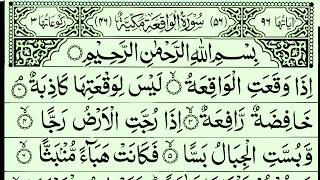 اٰيَاتُهَا ٩٦ (٥٦) سُوْرَةُ الْوَاقِعَةِ مَكِّيَّةٌ (٤٦) رُكُوْعَاتُهَا ٣
بِسْمِ اللّٰهِ الرَّحْمٰنِ الرَّحِيْمِ
اِذَا وَقَعَتِ الْوَاقِعَةُ ۙ لَيْسَ لِوَقْعَتِهَا كَاذِبَةٌ ۘ
خَافِضَةٌ رَّافِعَةٌ ۙ اِذَا رُجَّتِ الْاَرْضُ رَجًّا ۙ
وَّبُسَّتِ الْجِبَالُ بَسًّا ۙ فَكَانَتْ هَبَآءً مُّنْۢبَثًّا ۙ